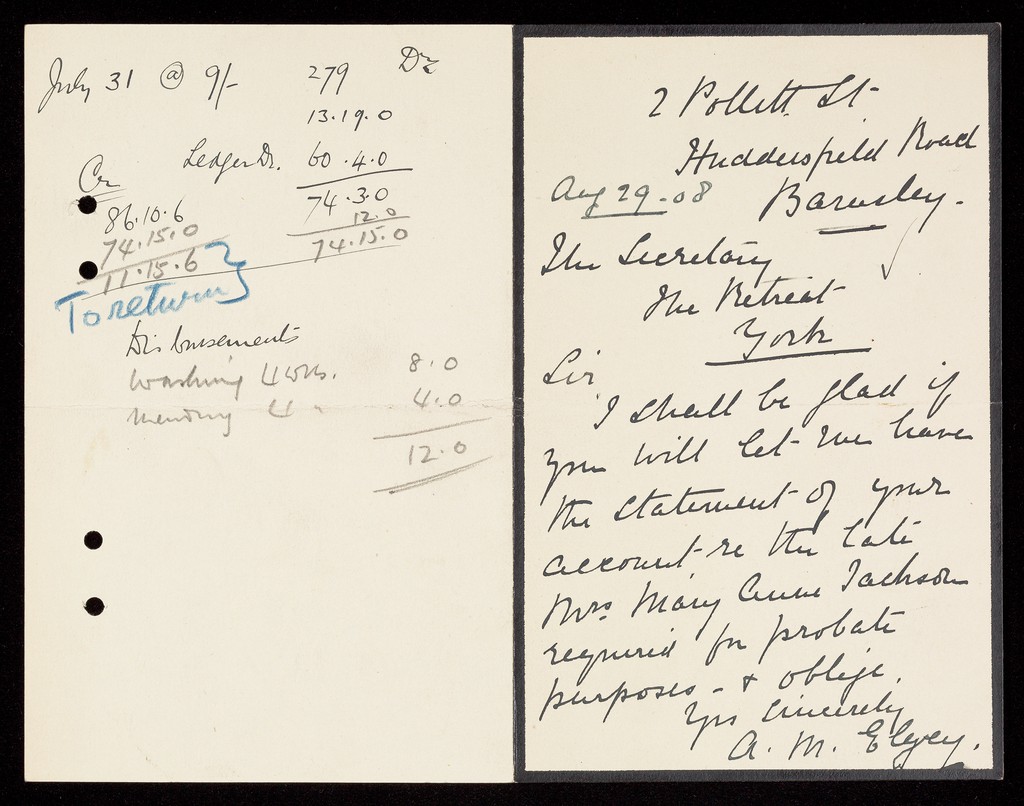 July 31 @ 9/- 279 Dr
13.19.0
Ledger Dr. 60.4.0
Cr 74.3.0
86.10.6 12.0
74.15.0 74.15.0
11.15.6
To return
Disbursements
Washing 4 wks. 8.0
Mending 4 " 4.0
12.0
2 Pollitt St
Huddersfield Road
Aug 29.08 Barnsley.
The Secretary
The Retreat
York
Sir
I shall be glad if
you will let me have
the statement of your
account re the late
Mrs. Mary Anne Jackson
required for probate
purposes - & oblige.
Yrs sincerely
A. M.